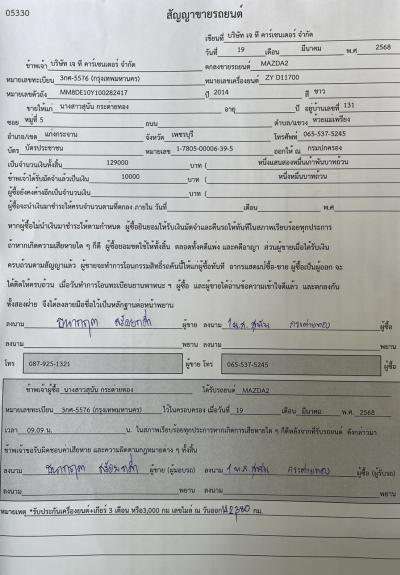 05330
สัญญาขายรถยนต์
เขียนที่ บริษัท เจ ที คาร์เซนเตอร์ จำกัด
วันที่ 19 เดือน มีนาคม พ.ศ 2568
ข้าพเจ้า บริษัท เจ ที คาร์เซนเตอร์ จำกัด ตกลงขายรถยนต์ MAZDA2
หมายเลขทะเบียน 3กศ-5576 (กรุงเทพมหานคร) หมายเลขเครื่องยนต์ ZY D11700
หมายเลขตัวถัง MM8DE10Y100282417 ปี 2014 สี ขาว
ขายให้แก่ นางสาวสุนัน กระต่ายทอง อายุ ปี อยู่บ้านเลขที่ 131
ซอย หมู่ที่ 5 ถนน ตำบล/แขวง ห้วยแม่เพรียง
อำเภอ/เขต แก่งกระจาน จังหวัด เพชรบุรี โทรศัพท์ 065-537-5245
บัตร บัตรประชาชน หมายเลข 1-7805-00006-39-5 ออกให้ ณ กรมปกครอง
เป็นจำนวนเงินทั้งสิ้น 129000 บาท ( หนึ่งแสนสองหมื่นเก้าพันบาทถ้วน
ข้าพเจ้าได้รับมัดจำแล้วเป็นเงิน 10000 บาท ( หนึ่งหมื่นบาทถ้วน
ผู้ซื้อยังคงค้างอีกเป็นจำนวนเงิน บาท (
ผู้ซื้อจะนำเงินมาชำระให้ครบจำนวนตามที่ตกลง ภายใน วันที่ เดือน พ.ศ
หากผู้ซื้อไม่นำเงินมาชำระให้ตามกำหนด ผู้ซื้อยินยอมให้ริบเงินมัดจำและคืนรถให้ทันทีในสภาพเรียบร้อยทุกประการ
ถ้าหากเกิดความเสียหายใด ๆ ก็ดี ผู้ซื้อยอมชดใช้ให้ทั้งสิ้น ตลอดทั้งคดีแพ่ง และคดีอาญา ส่วนผู้ขายเมื่อได้รับเงิน
ครบถ้วนตามสัญญาแล้ว ผู้ขายจะทำการโอนกรรมสิทธิ์รถคันนี้ให้แก่ผู้ซื้อทันที อากรแสตมป์ซื้อ-ขาย ผู้ซื้อเป็นผู้ออก จะ
ได้ติดให้ครบถ้วน เมื่อวันทำการโอนทะเบียนยานพาหนะ ฯ ผู้ซื้อ และผู้ขายได้อ่านข้อความเข้าใจดีแล้ว และตกลงกัน
ทั้งสองฝ่าย จึงได้ลงลายมือชื่อไว้เป็นหลักฐานต่อหน้าพยาน
ลงนาม ผู้ขาย ลงนาม น.ส. สุนัน กระต่ายทอง ผู้ซื้อ
ลงนาม พยาน ลงนาม พยาน
โทร 087-925-1321 ผู้ขาย โทร 065-537-5245 ผู้ซื้อ
ข้าพเจ้าผู้ซื้อ นางสาวสุนัน กระต่ายทอง ได้รับรถยนต์ MAZDA2
หมายเลขทะเบียน 3กศ-5576 (กรุงเทพมหานคร) ไว้ในครอบครอง เมื่อวันที่ 19 เดือน มีนาคม พ.ศ. 2568
เวลา 09.09 น. น. ในสภาพเรียบร้อยทุกประการหากเกิดการเสียหายใด ๆ ก็ดีหลังจากที่รับรถยนต์ ดังกล่าวมา
ข้าพเจ้าขอรับผิดชอบค่าเสียหาย และความผิดตามกฎหมายต่าง ๆ ทั้งสิ้น
ลงนาม ผู้ขาย (ผู้มอบรถ) ลงนาม น.ส. สุนัน กระต่ายทอง ผู้ซื้อ (ผู้รับรถ)
ลงนาม พยาน ลงนาม พยาน
หมายเหตุ *รับประกันเครื่องยนต์+เกียร์ 3 เดือน หรือ3,000 กม. เลขไมล์ ณ วันออก กม.